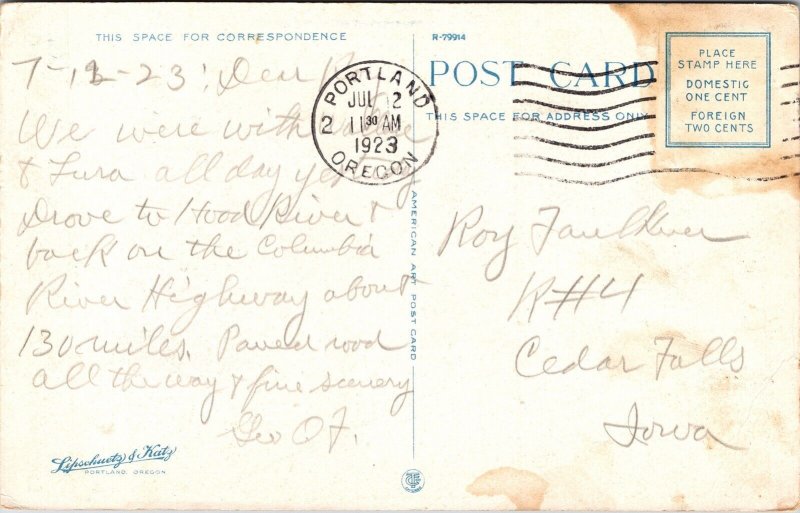 THIS SPACE FOR CORRESPONDENCE
7-12-23: Dear
We were with
& Lura all day
Drove to Hood River &
back on the Columbia
River Highway about
130 miles. Paved road
all the way & fine scenery
Geo O F.
Lipschuetz & Katz
PORTLAND, OREGON
AMERICAN ART POST CARD
PORTLAND
JUL 12
2 11 30 AM
1923
OREGON
R-79914
POST CARD
THIS SPACE FOR ADDRESS ONLY
PLACE
STAMP HERE
DOMESTIC
ONE CENT
FOREIGN
TWO CENTS
Roy Faulkner
R#4
Cedar Falls
Iowa